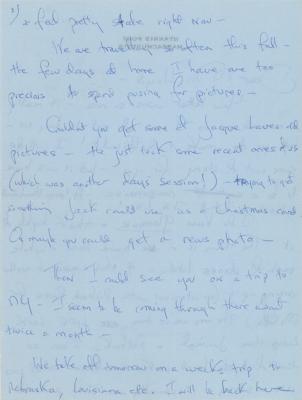 2) & feel pretty stale right now —
We are travelling often this fall —
the few days at home I have are too
precious to spend posing for pictures —
Couldn't you get some of Jacque Lowe's old
pictures — He just took some recent ones of us
(which was another days session!) — trying to get
something Jack could use as a Christmas card
Or maybe you could get a news photo —
Then I could see you on a trip to
NY — I seem to be coming through there about
twice a month —
We take off tomorrow on a weeks trip to
Nebraska, Louisiana etc. I will be back here